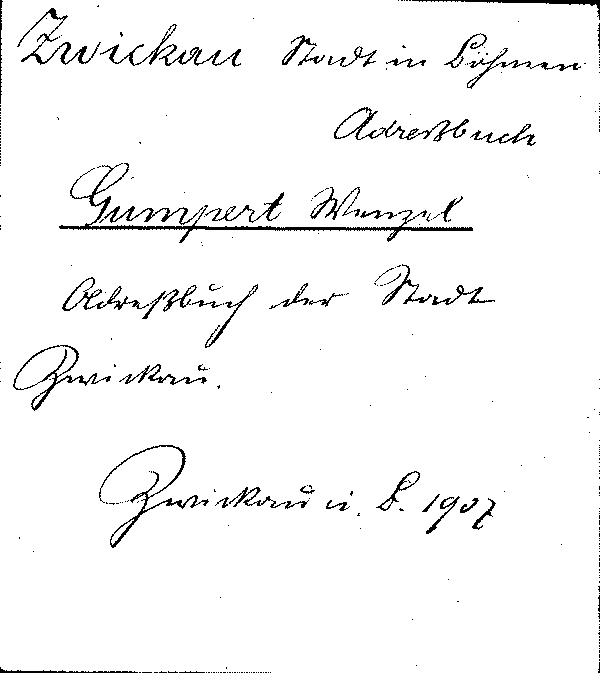 Zwickau Stadt in Böhmen
Adreßbuch
Gumpert Wenzel
Adreßbuch der Stadt
Zwickau.
Zwickau i. B. 1907